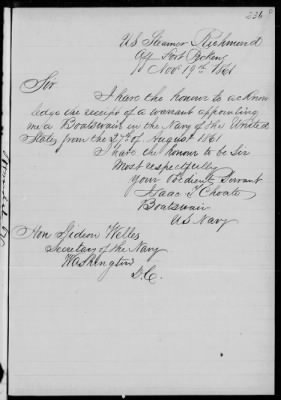 236
US Steamer Richmond
Off Fort Pickens
Nov 19th 1861
Sir
I have the honour to acknow
ledge the receipt of a warrant appointing
me a Boatswain in the Navy of the United
States from the 27th of August 1861
I have the honour to be Sir
Most respectfully
your Obedient Servant
Isaac T Choate
Boatswain
US Navy
Hon Gideon Welles
Secretary of the Navy
Washington
D.C.